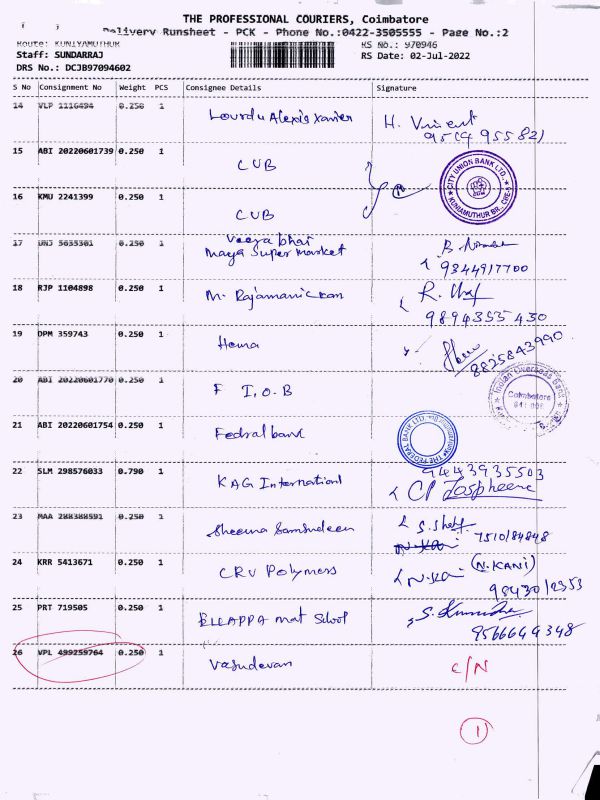 THE PROFESSIONAL COURIERS, Coimbatore
Delivery Runsheet - PCK - Phone No.:0422-3505555 - Page No.:2
Route: KUNIYAMUTHUR RS No.: 970946
Staff: SUNDARRAJ RS Date: 02-Jul-2022
DRS No.: DCJB97094602
S No Consignment No Weight PCS Consignee Details Signature
14 VLP 1116494 0.250 1 Lourdu Alexis Xavier H. Vincent
15 ABI 20220601739 0.250 1 CUB
CITY UNION BANK LTD.,
16 KMU 2241399 0.250 1 CUB
17 0.250 1 Veera bhai
Maya Super market
9344917700
18 RJP 1104898 0.250 1 M. Rajamanickam
9894355430
19 DPM 359743 0.250 1 Hema
8825843990
20 ABI 20220601770 0.250 1 F I.O.B
Indian Overseas Bank
Coimbatore
21 ABI 20220601754 0.250 1 Fedral bank
THE FEDERAL BANK LTD.
22 SLM 298576033 0.790 1 KAG International
9443935503
23 MAA 288388591 0.250 1 Sheema Samsudeen
24 KRR 5413671 0.250 1 CRV Polymers
N.Kani (N.KANI)
25 PRT 719505 0.250 1 ELLAPPA mat School
9566644348
26 VPL 499259764 0.250 1 Vasudevan C/N
1